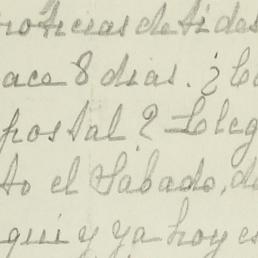 noticias de ti des
ace 8 dias. ¿
postal? Lleg
to el Sabado, de
qui y ya hoy es